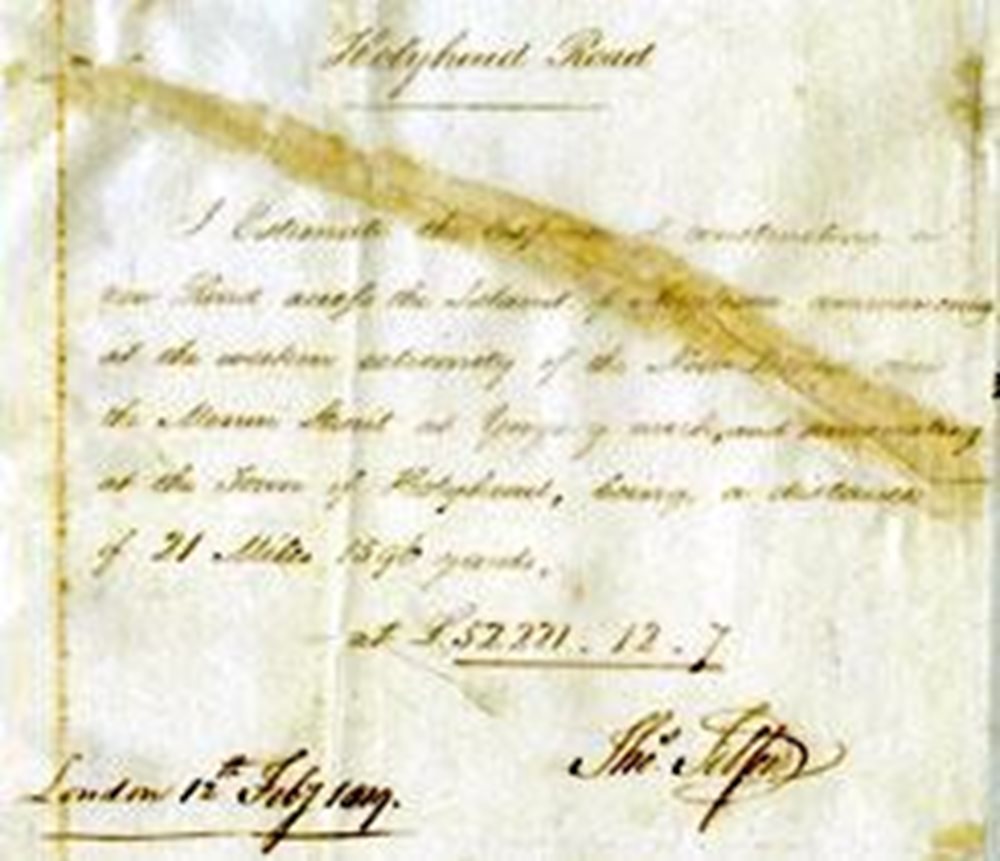 Holyhead Road
I Estimate the constructing a
new Road across the Island of commencing
at the western extremity of the New over
the Menai Strait at and terminating
at the Town of Holyhead, being a distance
of 21 Miles 1596 yards,
at £52271 . 12 . 7
Thos. Telford
London 12th Feby 1819.